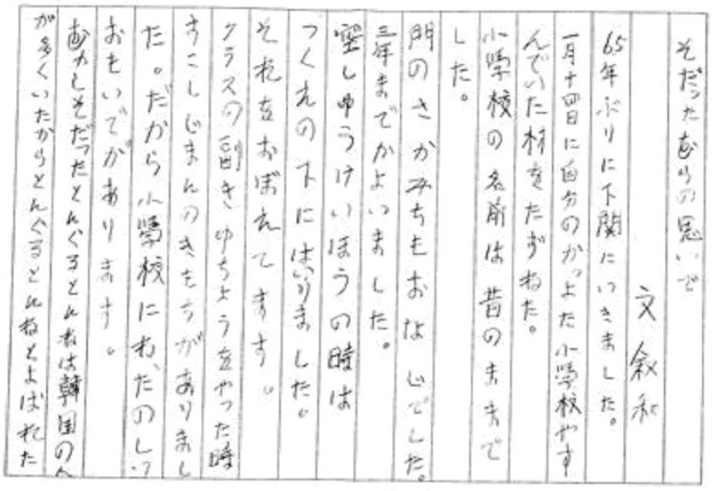 そだったむらの思いで
文 叙和
65年ぶりに下関にいきました。
一月十四日に自分のかっよた小學校やす
んでいた村をたずねた。
小學校の名前は昔のままで
した。
門のさかみちもおなじでした。
三年までかよいました。
空しゅうけいほうの時は
つくえの下にはいりました。
それをおぼえてます。
クラスの副きゅちょうをやった時
すこしじまんのきもちがありまし
た。だから小學校にわ、たのしい
おもいでがあります。
むかしそだったとんぐるとんねは韓国の人
が多くいたからとんぐるとんねとよばれた